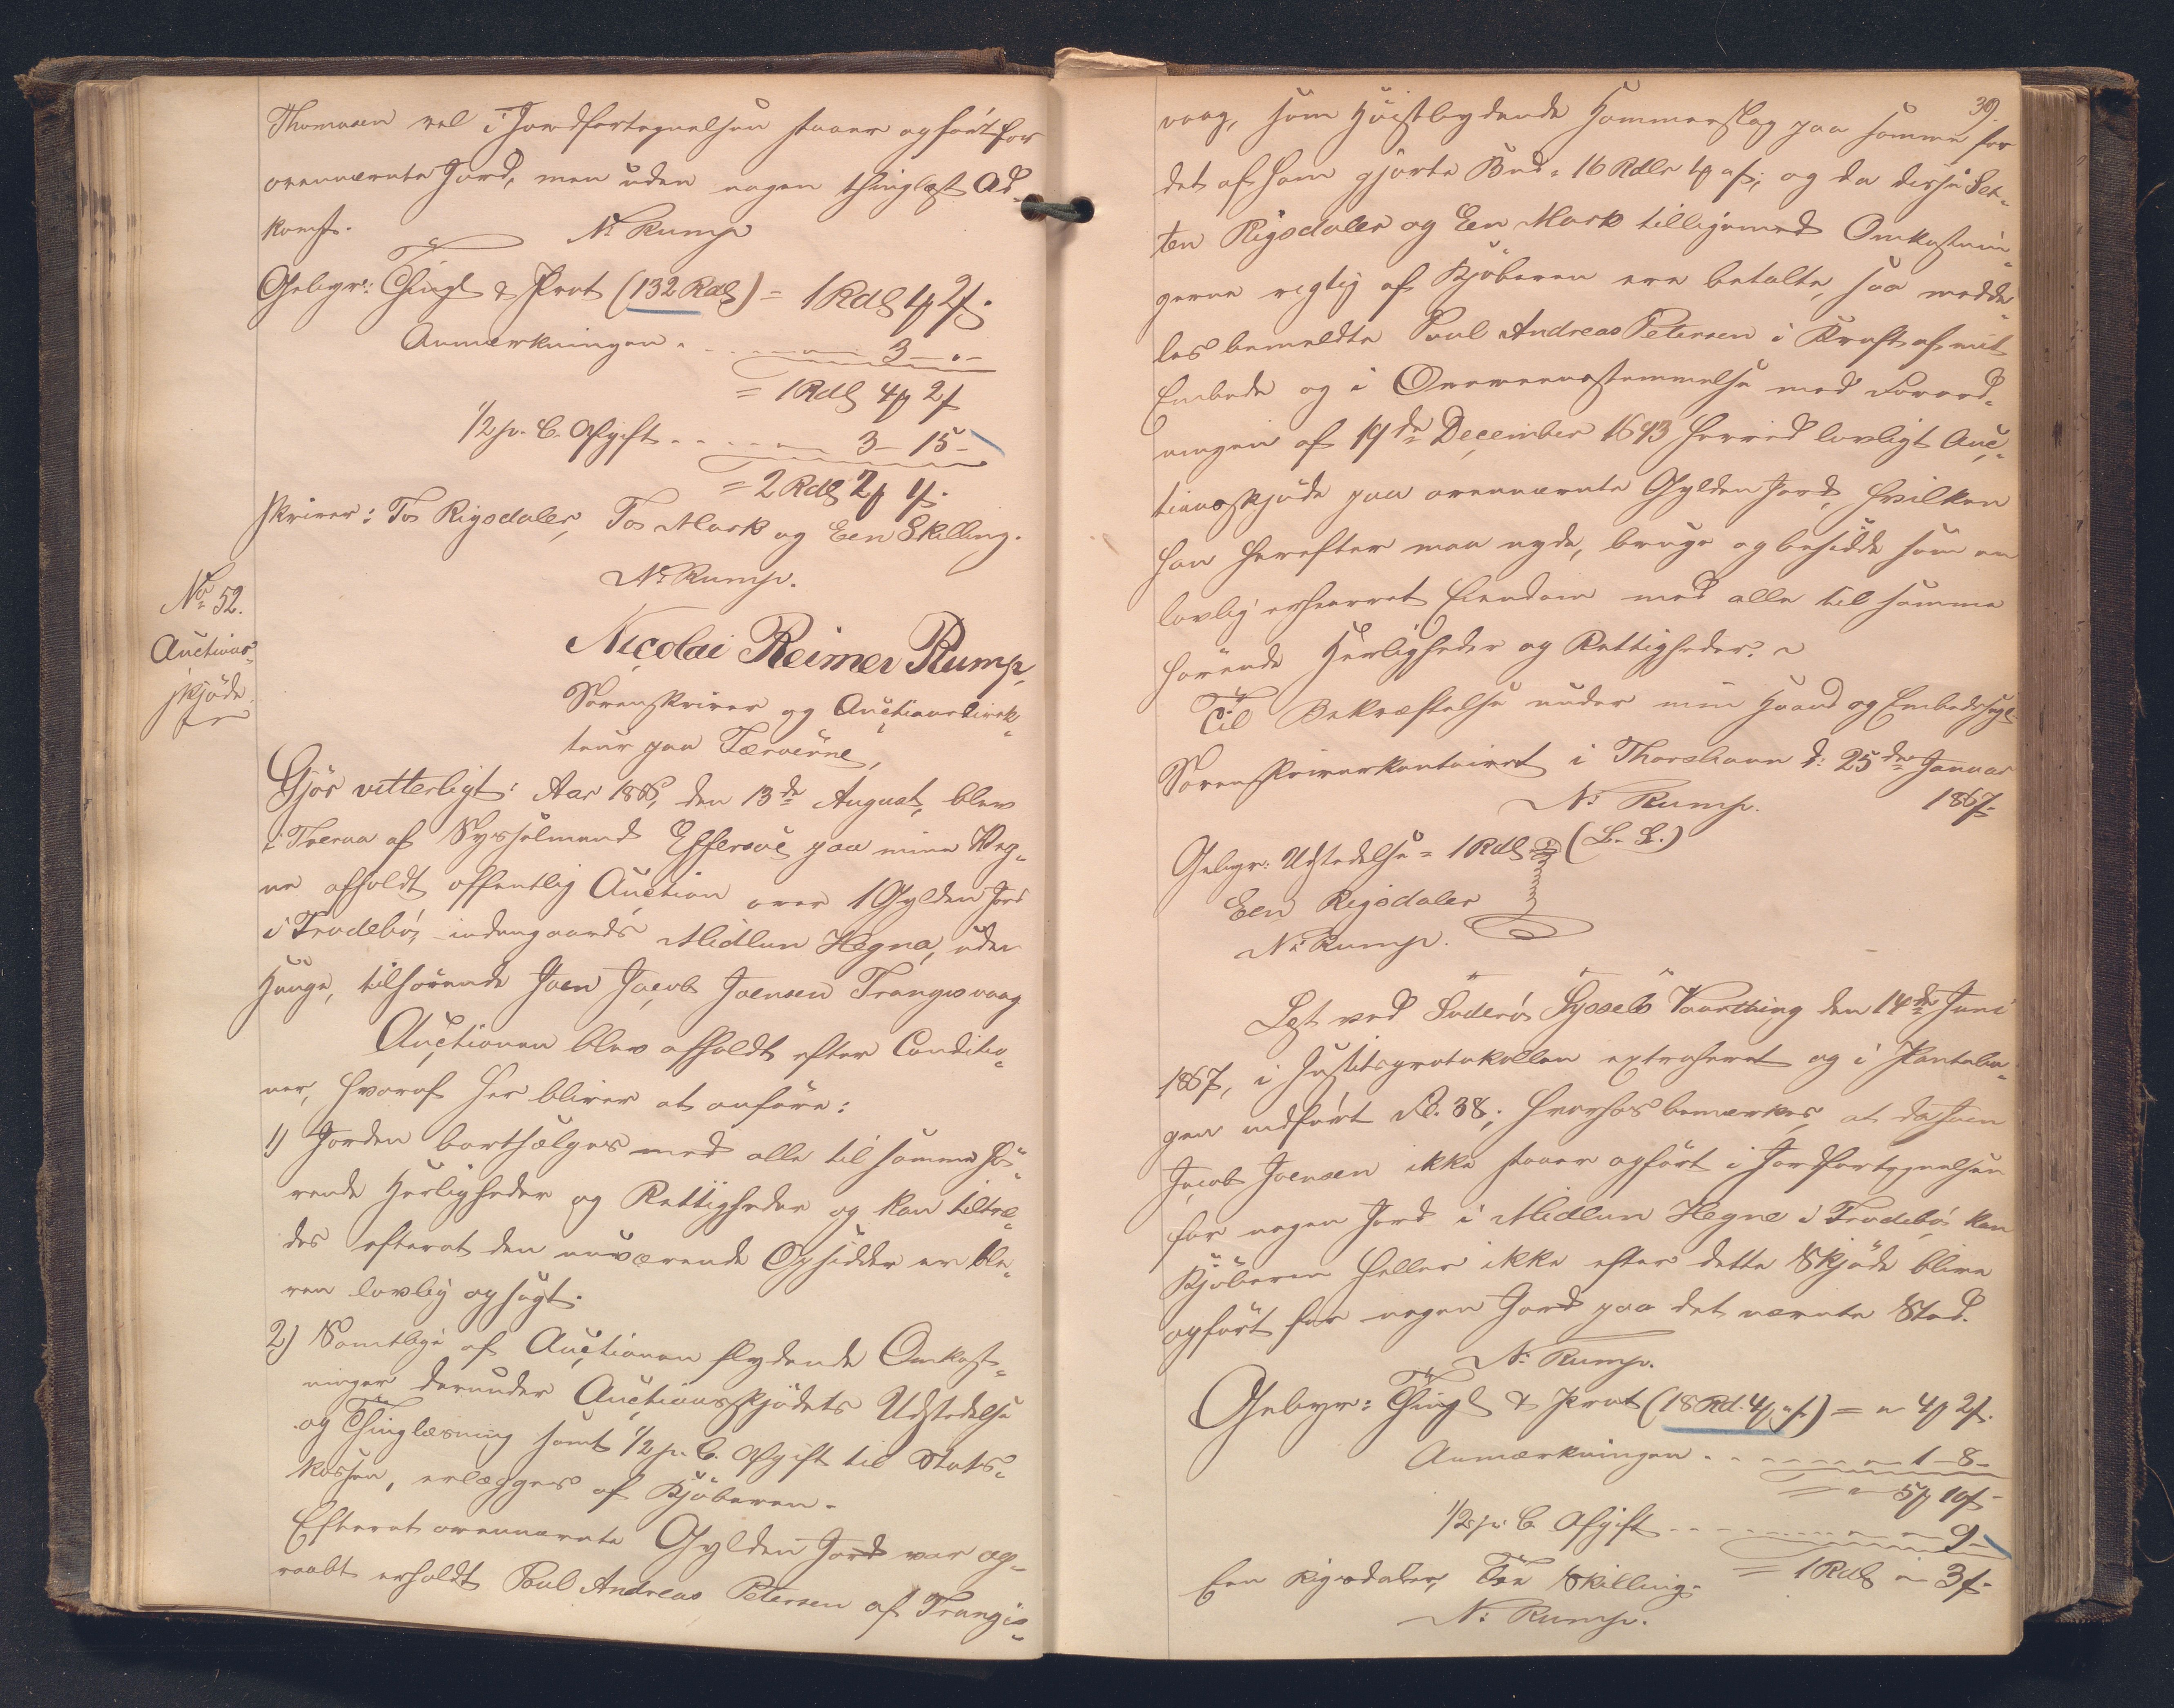 Thomasen vel i Jordfortegnelsen staaer opført for
ovennævnte Jord, men uden nogen thinglæst Ad-
komst.
N. Rump
Gebyr: Thingl & Prot (132 Rdl) = 1 Rdl 1 ꝑ 2 ß.
Anmærkningen . . . 3 — " —
= 1 Rdl 4 ꝑ 2 ß
1/2 p. C. Afgift . . . . 3 — 15 —
= 2 Rdl 2 ꝑ 1 ß.
skriver: To Rigsdaler, To Mark og Een Skilling.
N. Rump.
No 52.
Auctions-
skjøde.
Nicolai Reimer Rump,
Sorenskriver og Auctionsdirek-
teur paa Færøerne,
Gjør vitterligt: Aar 1866, den 13de August, blev
i Tveraa af Sysselmand Effersøe paa mine Veg-
ne afholdt offentlig Auction over 1 Gylden Jord
i Frodebø, indengaards Midlun Hegne, uden
Hauge, tilhørende Joen Jacob Joensen Trangisvaag
Auctionen blev afholdt efter Conditio-
ner, hvoraf her bliver at anføre:
1) Jorden bortsælges med alle til samme hø-
rende Herligheder og Rettigheder og kan tiltræ-
des efterat den nuværende Opsidder er ble-
ven lovlig opsagt.
2) Samtlige af Auctionen flydende Omkost-
ninger derunder Auctionsskjødets Udstedelse
og Thinglæsning samt 1/2 p. C. Afgift til Stats-
kassen, erlægges af Kjøberen.
Efterat ovennævnte Gylden Jord var op-
raabt erholdt Poul Andreas Petersen af Trangis-
39.
vaag, som Høistbydende Hammerslag paa samme for
det af ham gjorte Bud = 16 Rdlr 1 ꝑ " ß; og da disse Sex-
ten Rigsdaler og Een Mark tilligemed Omkostnin-
gerne rigtig af Kjøberen ere betalte, saa medde-
les bemeldte Poul Andreas Petersen i Kraft af mit
Embede og i Overeensstemmelse med Forord-
ningen af 19de December 1693 herved lovligt Auc-
tionsskjøde paa ovennævnte Gylden Jord, hvilken
han herefter maa nyde, bruge og besidde som en
lovlig erhvervet Eiendom med alle til samme
hørende Herligheder og Rettigheder. ~
Til Bekræftelse under min Haand og Embedssegl.
Sorenskriverkontoiret i Thorshavn d: 25de Januar
1867.
N. Rump.
(L. S.)
Gebyr: Udstedelse = 1 Rdl
Een Rigsdaler
N. Rump.
Læst ved Suderø Syssels Vaarthing den 14de Juni
1867, i Justitsprotokollen extraheret og i Pantebo-
gen indført Fol. 38; hvorhos bemærkes, at da Joen
Jacob Joensen ikke staaer opført i Jordfortegnelsen
for nogen Jord i Midlun Hegne i Frodebø, kan
Kjøberen heller ikke efter dette Skjøde blive
opført for nogen Jord paa det nævnte Sted.
N. Rump.
Gebyr: Thingl & Prot (18 Rd. 4 ꝑ " ß) = " 4 ꝑ 2 ß.
Anmærkningen . . . . 1 — 8 —
= " 5 ꝑ 10 ß
1/2 p. C. Afgift . . . . 9 —
= 1 Rdl " 3 ß.
Een Rigsdaler, Tre Skilling.
N. Rump.